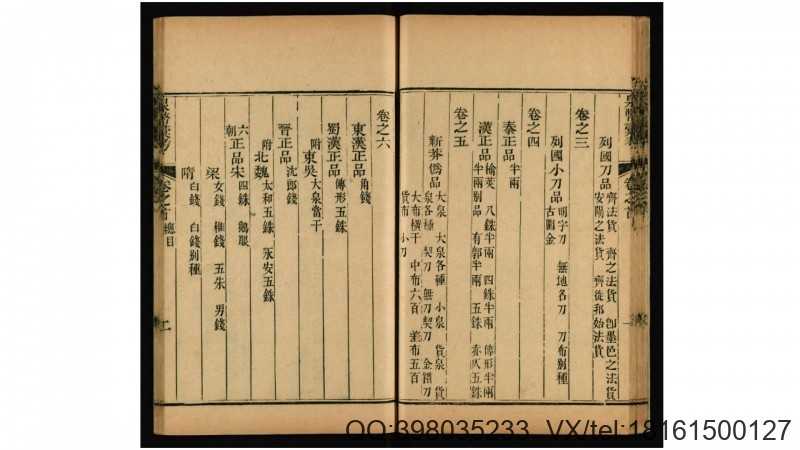 卷之三
列國刀品 齊法貨 齊之法貨 卽墨邑之法貨
安陽之法貨 齊徙邦始法貨
列國小刀品 明字刀 無地名刀 刀布別種
古圜金
卷之四
秦正品 半兩
漢正品 榆莢 八銖半兩 四銖半兩 傳形半兩
半兩別品 有郭半兩 五銖 赤仄五銖
卷之五
新莽僞品 大泉 大泉各種 小泉 貨泉 貨
泉各種 契刀 無刀契刀 金錯刀
大布橫千 中布六百 差布五百
貨布 小刀
卷之六
東漢正品 角錢
蜀漢正品 傳形五銖
附東吳 大泉當千
晉正品 沈郎錢
附北魏 太和五銖 永安五銖
六朝正品 宋 四銖 鵝眼
梁 女錢 稚錢 五朱 男錢
隋 白錢 白錢別種
卷之首 總目
QQ:398035233 VX/tel:18161500127